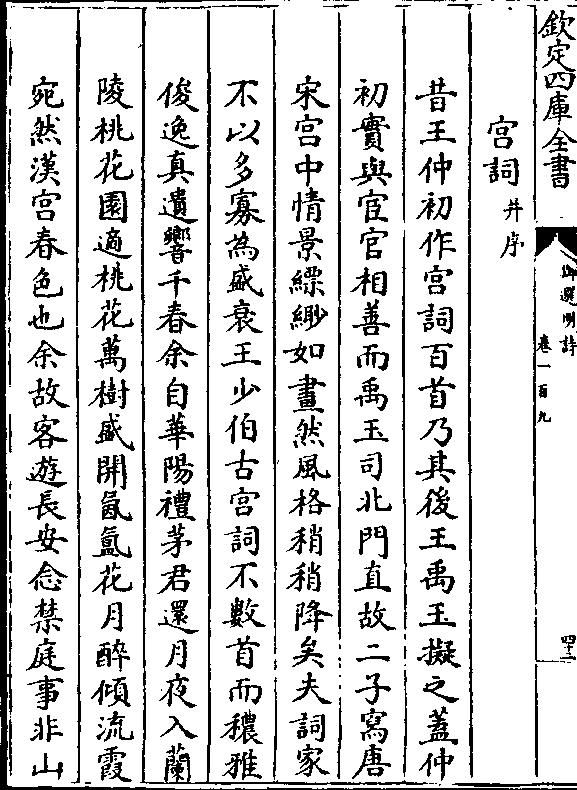 欽定四庫全書
御選明詩
卷一百九
四十二
宫詞并序
昔王仲初作宫詞百首乃其後王禹玉擬之蓋仲
初實與宦官相善而禹玉司北門直故二子寫唐
宋宫中情景縹緲如畫然風格稍稍降矣夫詞家
不以多寡為盛衰王少伯古宫詞不數首而穠雅
俊逸真遺響千春余自華陽禮茅君還月夜入蘭
陵桃花園適桃花萬樹盛開氤氲花月醉傾流霞
宛然漢宫春色也余故客遊長安念禁庭事非山